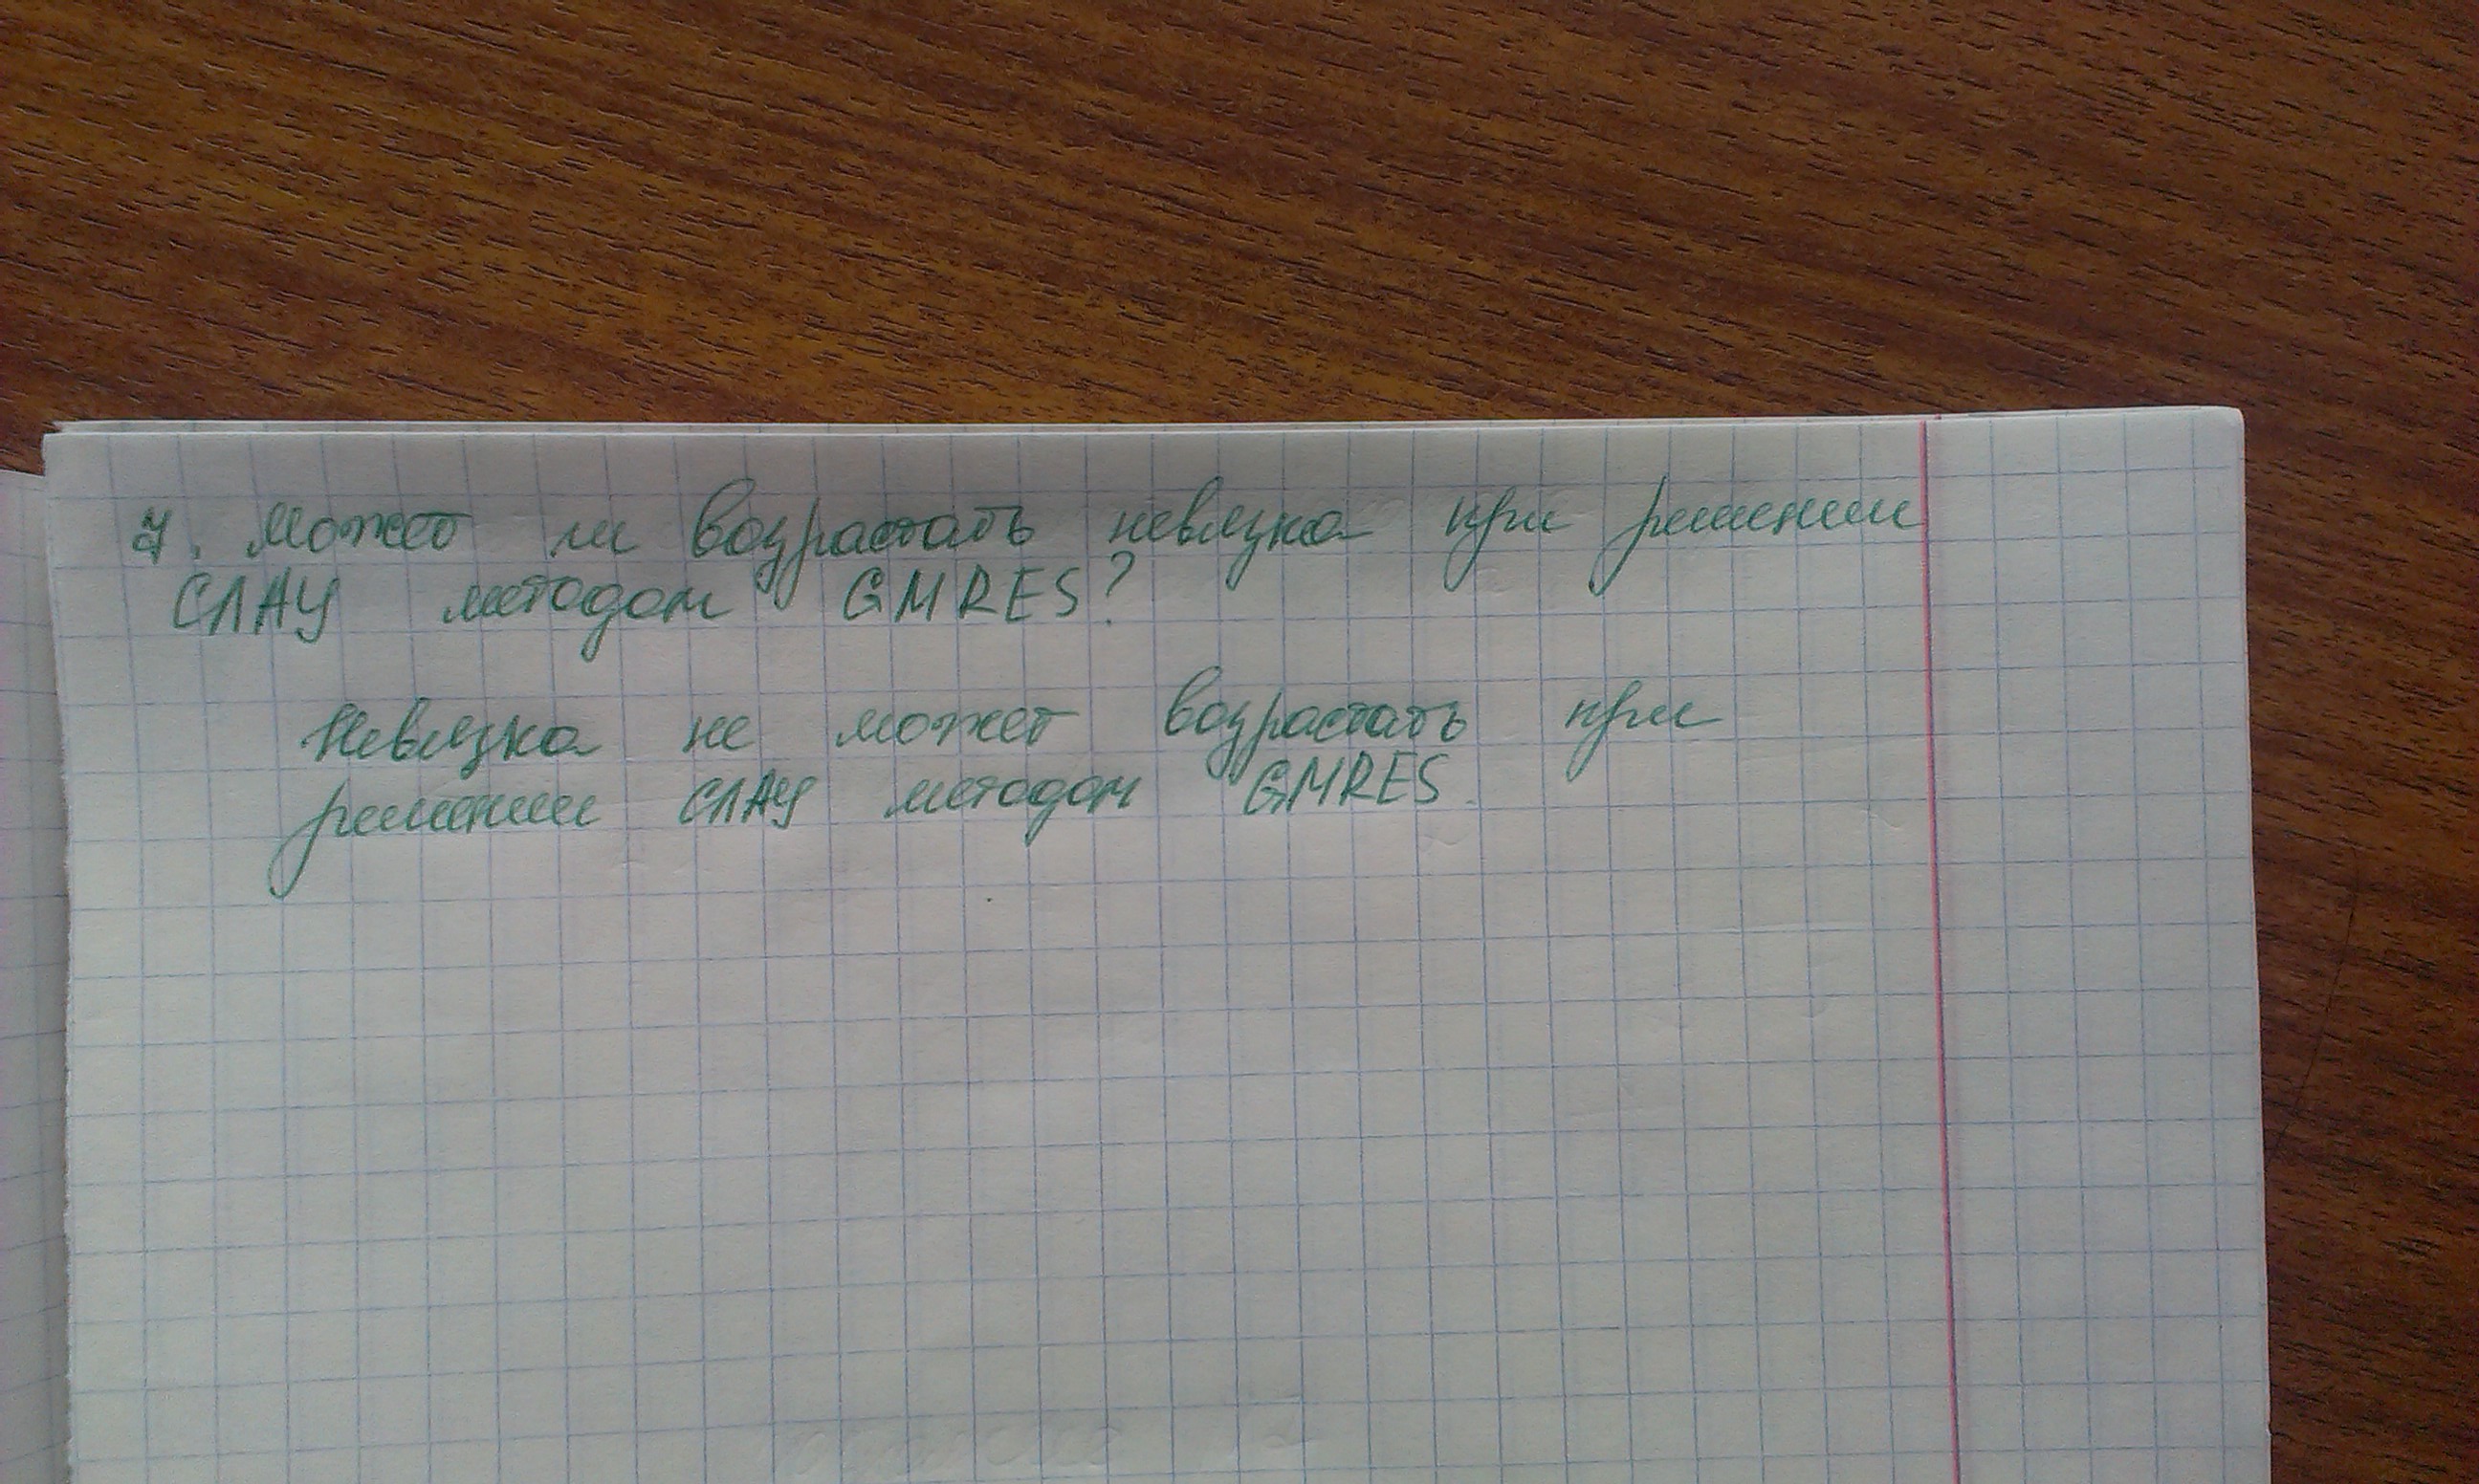 7. Может ли возрастать невязка при решении
СЛАУ методом GMRES?
Невязка не может возрастать при
решении СЛАУ методом GMRES.